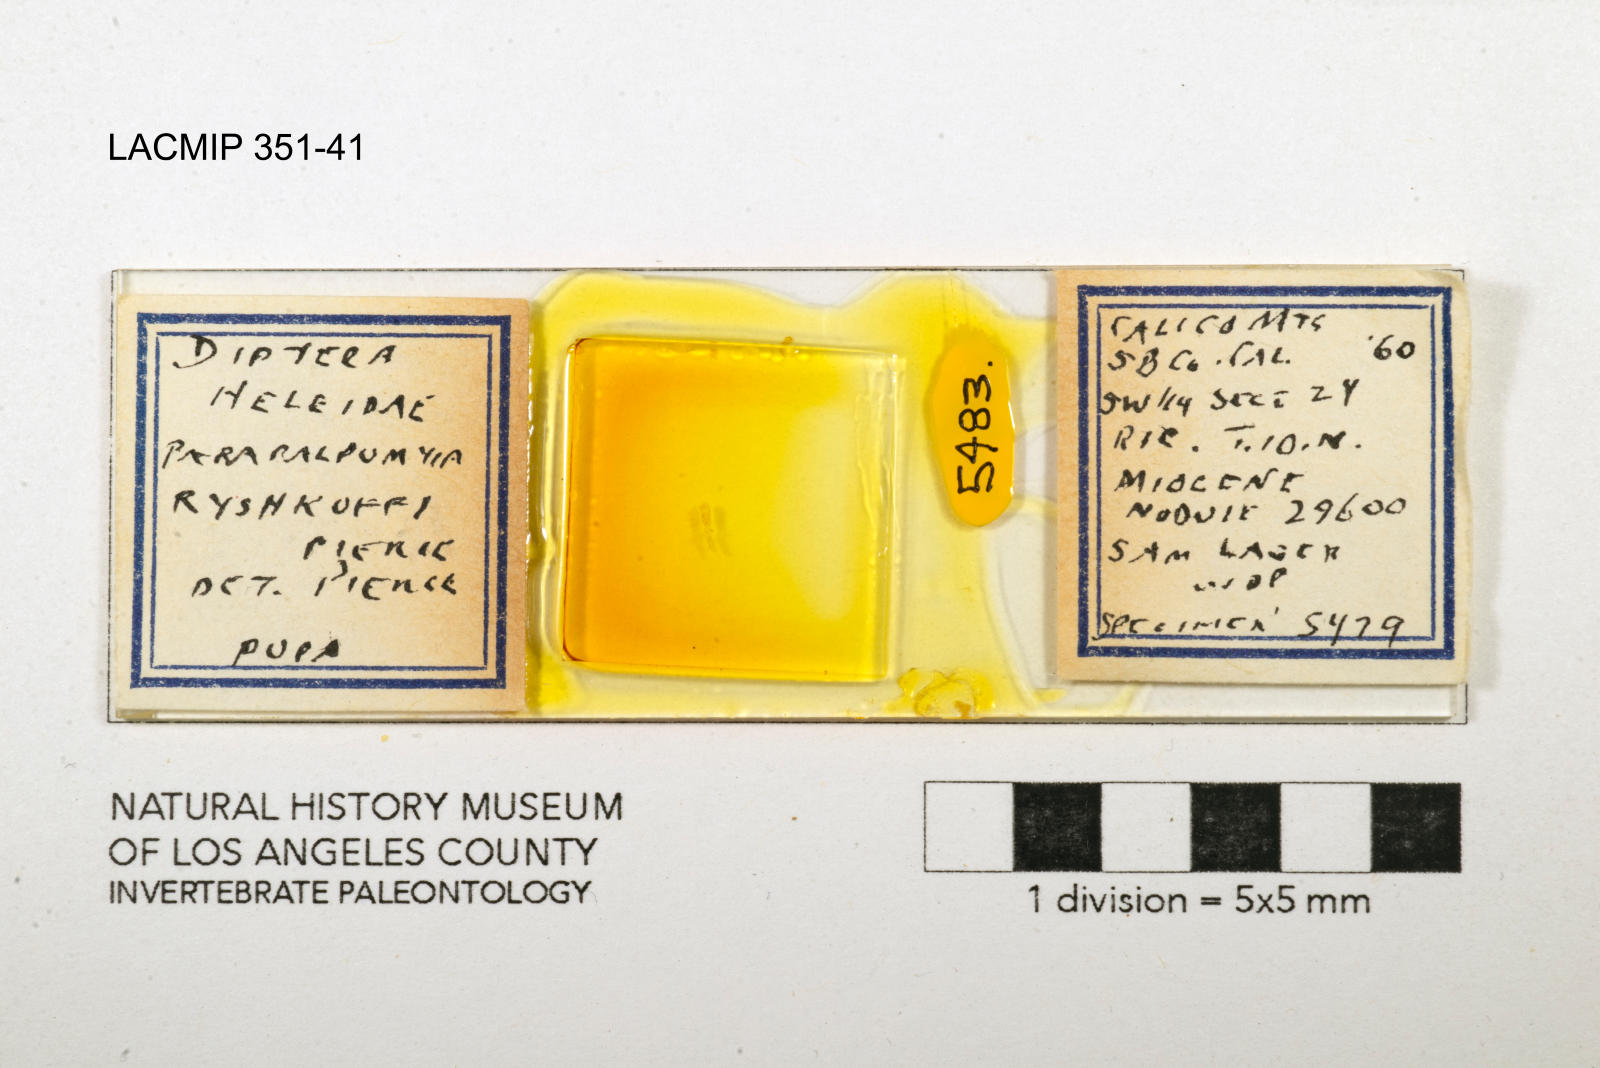 LACMIP 351-41
DIPTERA
HELEIDAE
PARAPALPOMYIA
RYSHKOFFI
PIERCE
DET. PIERCE
PUPA
5483.
CALICO MTS
SB Co. CAL. '60
SW 1/4 SECT 24
R1E. T.10.N.
MIOCENE
NODULE 29600
SAM LAGER
SPECIMEN 5479
NATURAL HISTORY MUSEUM
OF LOS ANGELES COUNTY
INVERTEBRATE PALEONTOLOGY
1 division = 5x5 mm